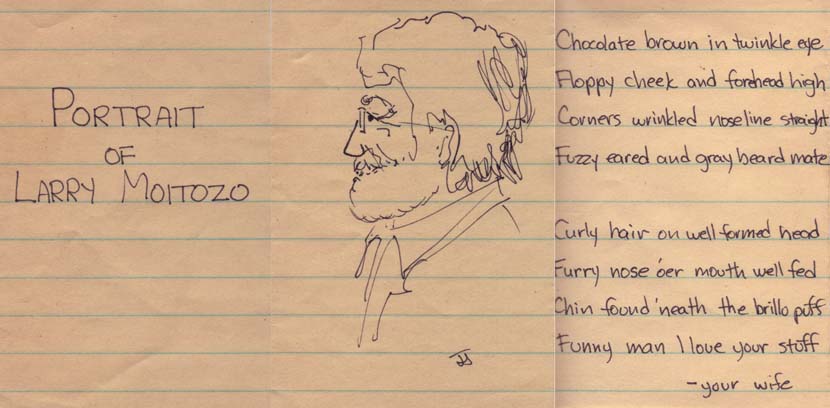 PORTRAIT
OF
LARRY MOITOZO
Chocolate brown in twinkle eye
Floppy cheek and forehead high
Corners wrinkled noseline straight
Fuzzy eared and gray beard mate
Curly hair on well formed head
Furry nose o'er mouth well fed
Chin found 'neath the brillo puff
Funny man I love your stuff
- your wife